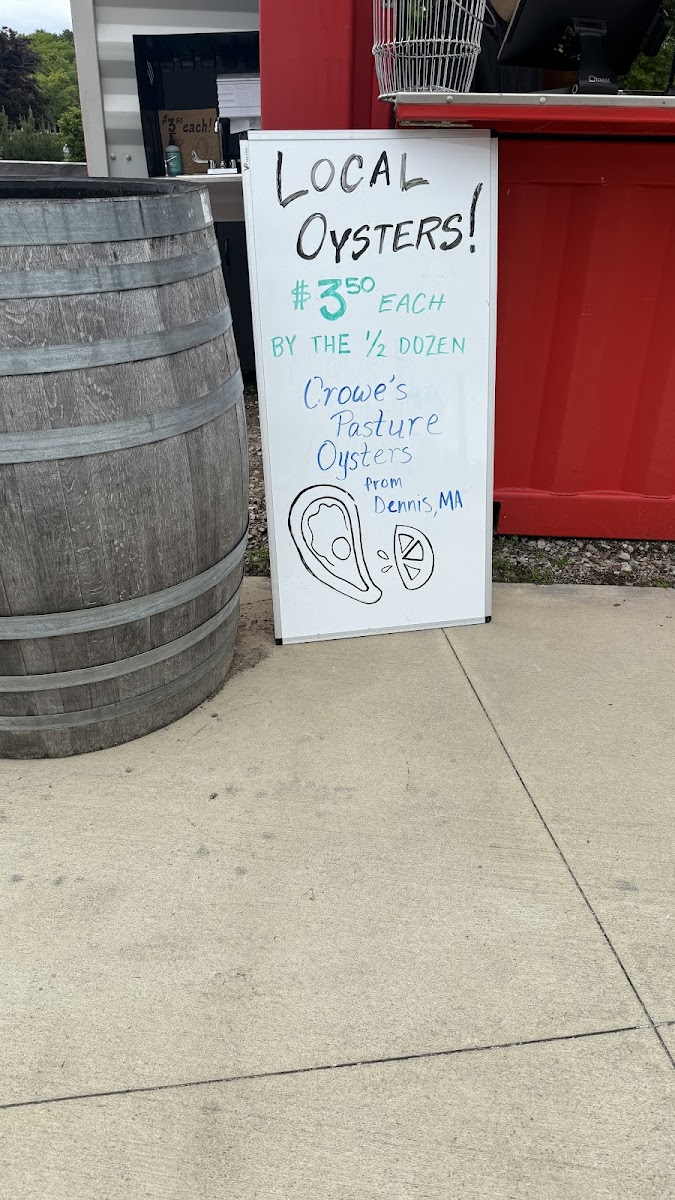 $3.50 each!
LOCAL
OYSTERS!
$3.50 EACH
BY THE 1/2 DOZEN
Crowe's
Pasture
Oysters
from
Dennis, MA
toast